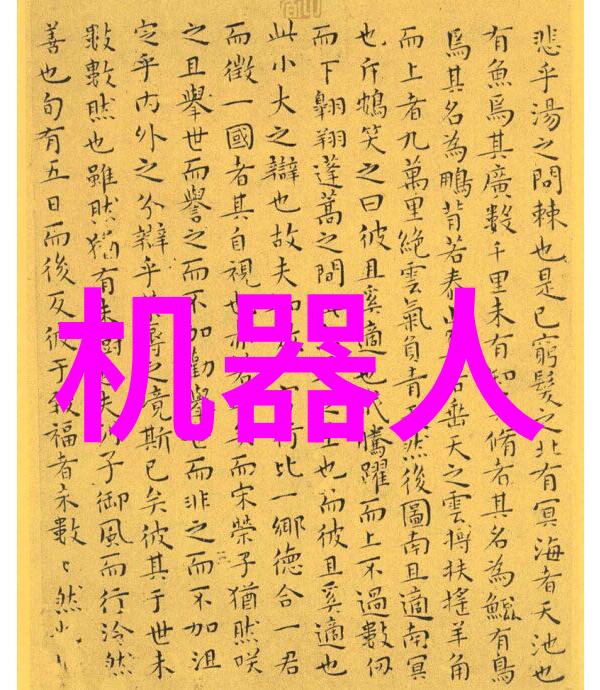 悲乎湯之問棘也是已窮髮之北有冥海者天池也
有魚焉其廣數千里未有知脩者其名為鯤有鳥
焉其名為鵬背若泰山若垂天之雲摶扶搖羊角
而上者九萬里絕雲氣負青然後圖南且適南冥
也斥鴳笑之曰彼且奚適也騰躍而上不過數仞
而下翱翔蓬蒿之間也而彼且奚適也
此小大之辯也故夫知行比一鄉德合一君
而徵一國者其自視也而宋榮子猶然咲
之且舉世而譽之而不加勸舉而非之而不加沮
定乎內外之分辯乎辱之竟斯已矣彼其于世未
數數然也雖然猶有未樹夫列子御風而行泠然
善也旬有五日而後反彼于致福者未數〻然也
机器人